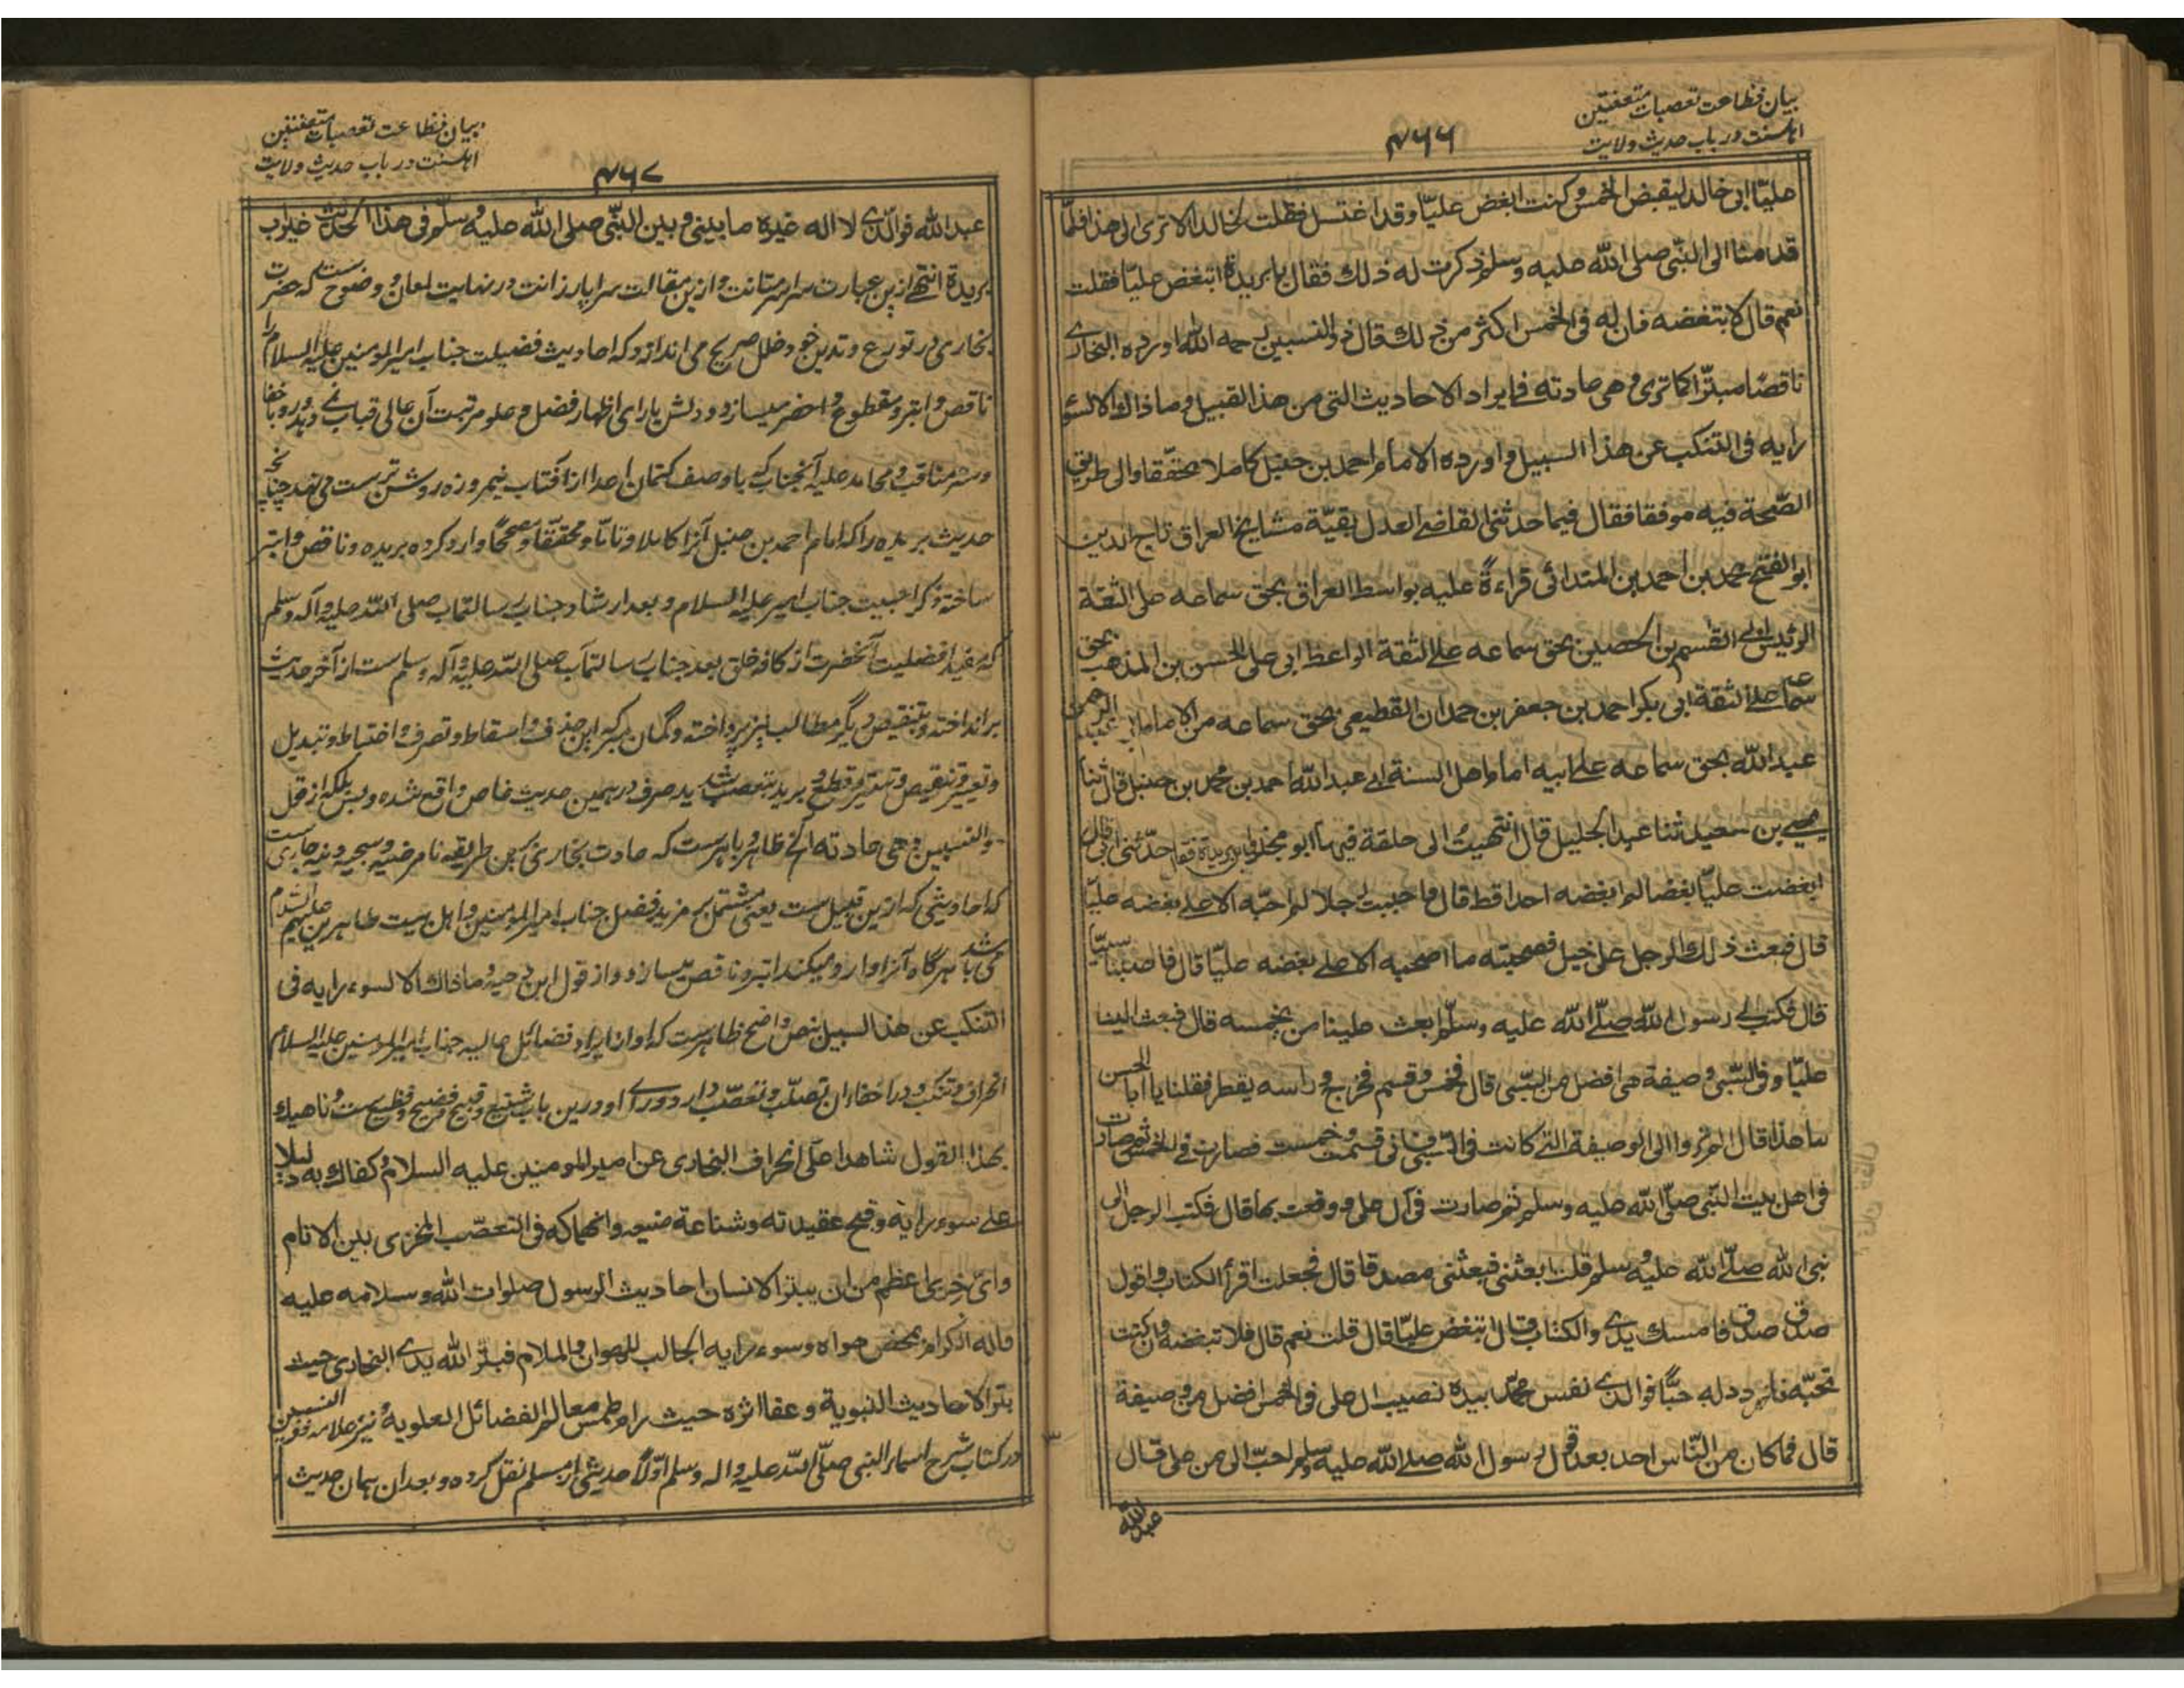 بیان فظاعت تعصبات متعنتین
اهلسنت در باب حدیث ولایت
۴۶۶
علیّا الی خالد لیقبض الخمس و کنت ابغض علیّا و قد اغتسل فقلت لخالد الا تری الی هذا فلمّا
قدمنا الی النّبی صلی الله علیه و سلم ذکرت له ذلك فقال یا بریدة اتبغض علیّا فقلت
نعم قال لا تبغضه فان له فی الخمس اکثر من ذلك قال ذو النسبین رحمه الله اورده البخاری
ناقصًا مبتّرا کما تری و هی عادته فی ایراد الاحادیث التی من هذا القبیل و ما ذاك الا لسوء
رایه فی التنکب عن هذا السبیل و اورده الامام احمد بن حنبل کاملا محقّقا و الی طریق
الصّحة فیه موفقا فقال فیما حدثنی القاضی العدل بقیّة مشایخ العراق تاج الدین
ابو الفتح محمد بن احمد بن المندائی قراءةً علیه بواسط العراق بحق سماعه علی الثقة
الرئیس ابی القسم بن الحصین بحق سماعه علی الثقة الواعظ ابی علی الحسن بن المذهب بحق
سماعه علی الثقة ابی بکر احمد بن جعفر بن حمدان القطیعی بحق سماعه من الامام ابی عبد الرحمن
عبد الله بحق سماعه علی ابیه امام اهل السنة ابی عبد الله احمد بن محمد بن حنبل قال ثنا
یحیی بن سعید ثنا عبد الجلیل قال انتهیتُ الی حلقة فیها ابو مجلز و ابن بریدة فقال حدّثنی ابی قال
ابغضت علیّا بغضا لم ابغضه احدا قط قال و احببت رجلا لم احبّه الا علی بغضه علیّا
قال فبعث ذلك الرجل علی خیل فصحبته ما اصحبه الا علی بغضه علیّا قال فاصبنا سبیّا
قال فکتب الی رسول الله صلّی الله علیه و سلّم ابعث علینا من یخمسه قال فبعث الینا
علیّا و فی السّبی وصیفة هی افضل من السّبی قال فخمس و قسم فخرج و راسه یقطر فقلنا یا ابا الحسن
ما هذا قال الم تروا الی الوصیفة التی کانت فی السّبی فانی قسمت و خمست فصارت فی الخمس ثم صارت
فی اهل بیت النّبی صلّی الله علیه و سلم ثم صارت فی آل علی و وقعت بها قال فکتب الرجل الی
نبی الله صلّی الله علیه و سلم قلت ابعثنی فبعثنی مصدقا قال فجعلت اقرأ الکتاب و اقول
صدق صدق فامسك یدی و الکتاب و قال اتبغض علیّا قال قلت نعم قال فلا تبغضه و ان کنت
تحبّه فازدد له حبًّا فو الذی نفس محمّد بیده لنصیب ال علی فی الخمس افضل من وصیفة
قال فما کان من النّاس احد بعد قول رسول الله صلی الله علیه و سلم احبّ الی من علی قال
عبد الله
بیان فظاعت تعصبات متعنتین
اهلسنت در باب حدیث ولایت
۴۶۷
عبد الله فو الّذی لا اله غیره ما بینی و بین النّبی صلی الله علیه و سلّم فی هذا الحدیث غیر اب
بریدة انتهی ازین عبارت سراسر متانت و ازین مقالت سراپا رزانت در نهایت لمعان و وضوحست که حضرت
بخاری در تورع و تدین خود خلل صریح می اندازد که احادیث فضیلت جناب امیر المومنین علیه السلام را
ناقص و ابتر و مقطوع و اخضر میسازد و دلش یارای اظهار فضل و علو مرتبت آن عالی قباب نمی دهد و رو باخفا
و ستر مناقب و محامد علیه آنجناب که با وصف کتمان اعدا از آفتاب نیمروزه روشن ترست می نهد چنانچه
حدیث بریده را که امام احمد بن حنبل آنرا کاملا و تامّا و محقّقا و مصححًا وارد کرده بریده و ناقص و ابتر
ساخته ذکر احبیت جناب امیر علیه السلام و بعد ارشاد جناب رسالتماب صلی الله علیه و آله و سلم
که مفید افضلیت آنحضرت از کافه خلق بعد جناب رسالتمآب صلی الله علیه و آله و سلم ست از آخر حدیث
بر انداخته و بتنقیص دیگر مطالب نیز پرداخته و گمان مبر که این حذف و اسقاط و تصرف و اختباط و تبدیل
و تغییر و تنقیص و تبتیر و قطع و برید بتعصب شدید صرف در همین حدیث خاص واقع شده و بس بلکه از قول
ذو النسبین و هی عادته الخ ظاهر و باهرست که عادت بخاری برین طریقه نامرضیه و سجیه دنیه جاریست
که احادیثی که ازین قبیل ست یعنی مشتمل بر مزید فضل جناب امیر المومنین و اهل بیت طاهرین علیهم السلام
می باشد هرگاه آنرا وارد میکند ابتر و ناقص میسازد و از قول ابن دحیه و ما ذاك الا لسوء رایه فی
التنکب عن هذا السبیل بنص واضح ظاهرست که او از ایراد فضائل عالیه جناب امیر المومنین علیه السلام
انحراف و تنکب و در اخفاء ان تصلّب و تعصّب دارد و رای او درین باب شنیع و قبیح و فضیح و فظیع ست و ناهیك
بهذا القول شاهدا علی انحراف البخاری عن امیر المومنین علیه السلام و کفاك به دلیلا
علی سوء رایه و قبح عقیدته و شناعة صنیعه و انهماکه فی التعصّب المخزی بین الانام
و ای خزی اعظم من ان یبتر الانسان احادیث الرسول صلوات الله و سلامه علیه
و اله الکرام بمحض هواه و سوء رایه الجالب للهوان و الملام فبتر الله یدی البخاری حیث
بتر الاحادیث النبویة و عفا اثره حیث رام طمس معالم الفضائل العلویة و نیز علامه ذو النسبین
در کتاب شرح اسماء النبی صلّی الله علیه و اله و سلم اوّلا حدیثی از مسلم نقل کرده و بعد ان همان حدیث